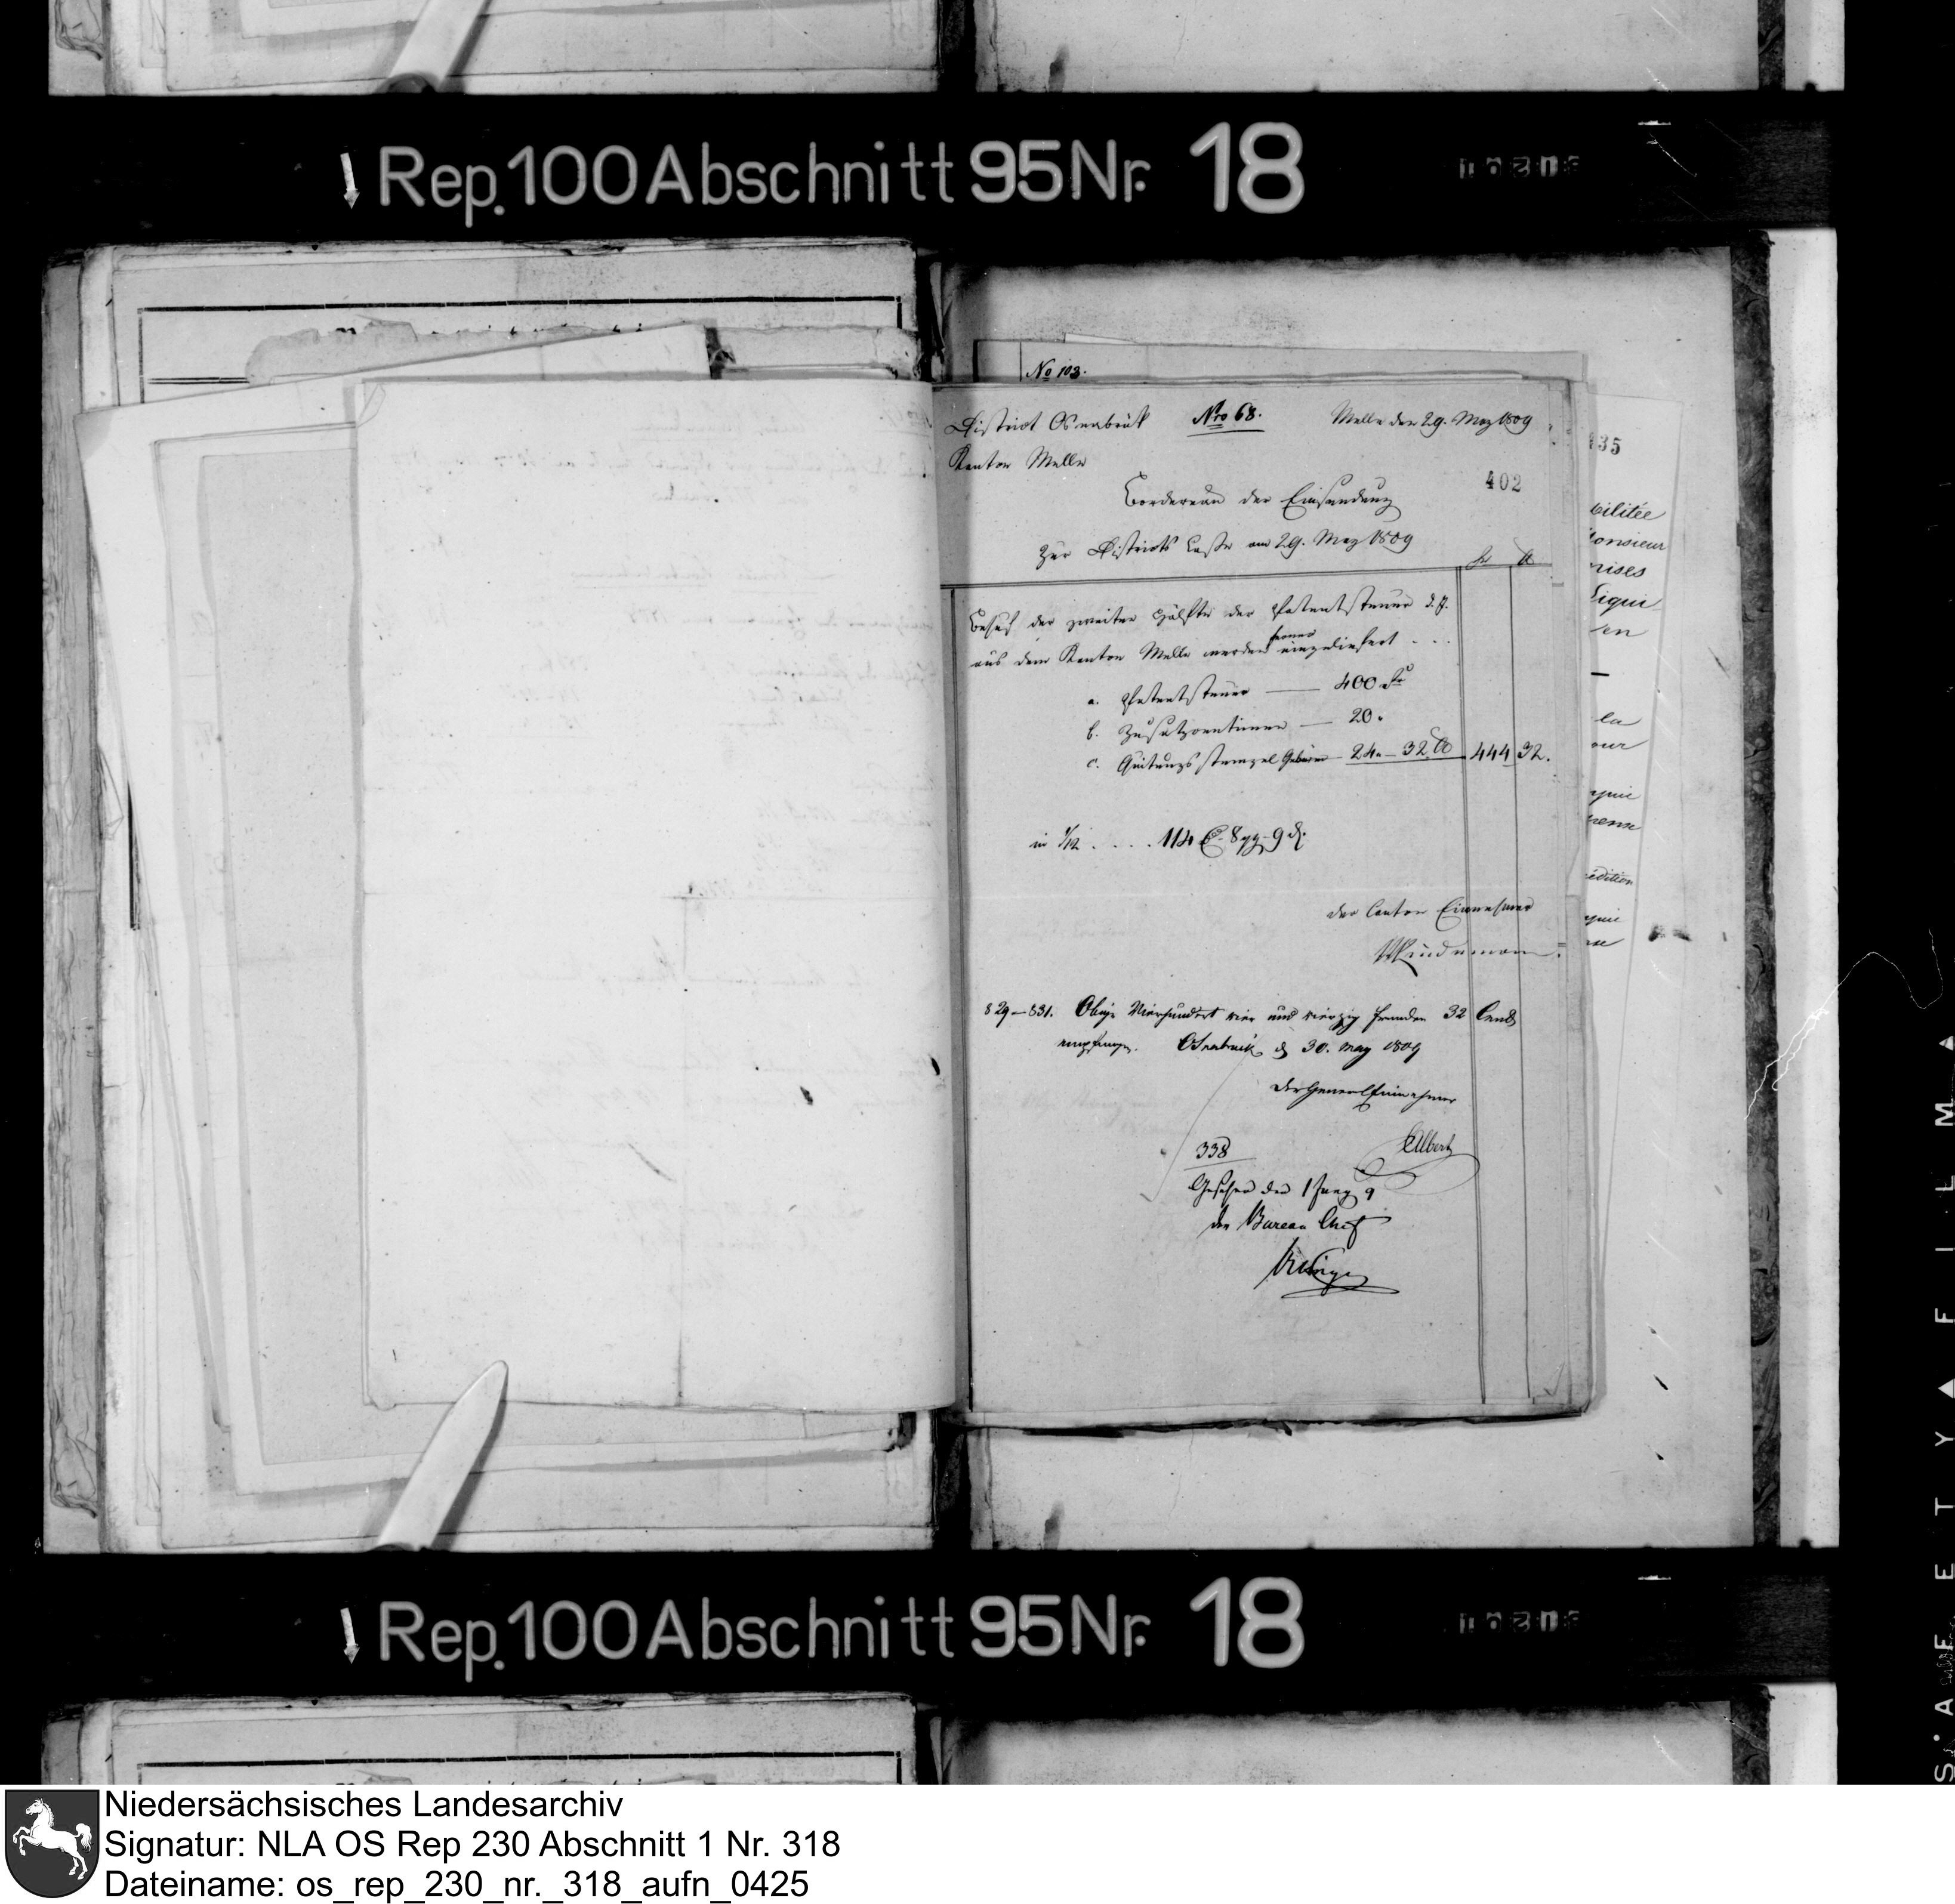 Rep. 100 Abschnitt 95 Nr. 18
No 103.
District Osnabrük Nro 68. Melle den 29. May 1809
Kanton Melle
402
Bordereau der Einsendung
Zur Districts Casse am 29. May 1809
fr Ct
Behuf der zweiten Hälfte der Patentsteuer d. J.
aus dem Kanton Melle werden ferner eingeliefert . . .
a. Patentsteuer — 400 Fr
b. Zusatzcentimen — 20 "
c. Quitungsstempel Gebüren 24 " — 32 Ct 444 32.
in 1/12 . . . . 114 8 gg 9 d.
der Canton Einnehmer
829–831. Obige Vierhundert vier und vierzig Franken 32 Cent
empfangen. Osnabrück d 30. May 1809
der General Einnehmer
Albert
338
Gesehen den 1 Juny 9
der Bureau Chef
135
bilitée
Monsieur
rises
Liqui
en
la
our
édition
Rep. 100 Abschnitt 95 Nr. 18
SAFETY FILM
Niedersächsisches Landesarchiv
Signatur: NLA OS Rep 230 Abschnitt 1 Nr. 318
Dateiname: os_rep_230_nr._318_aufn_0425